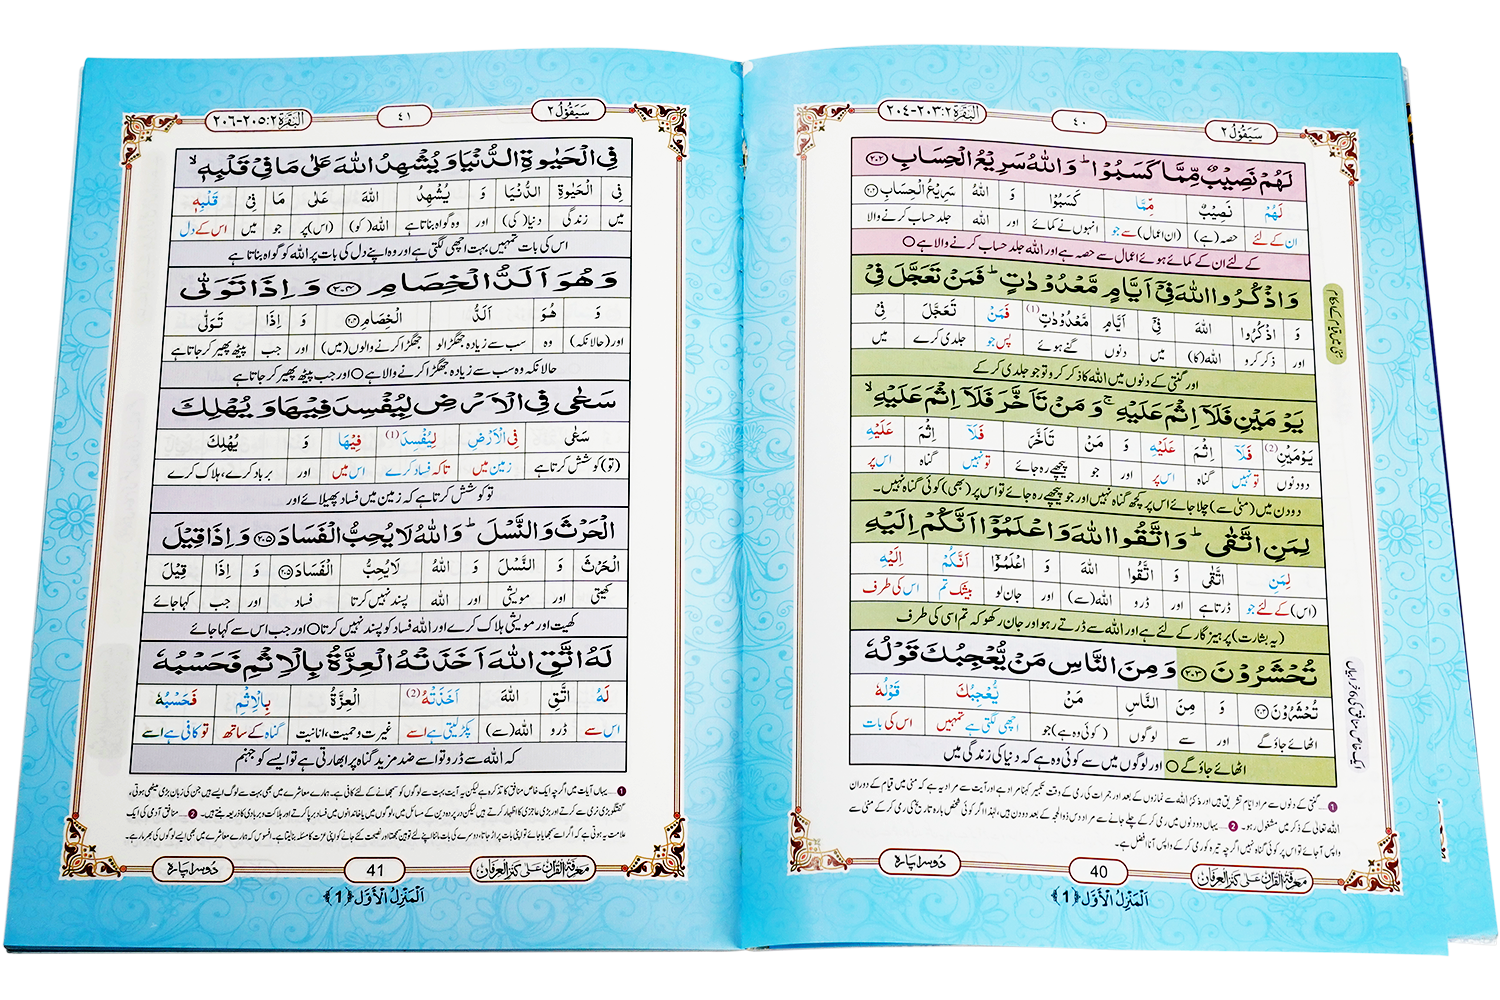 سَيَقُوْلُ ٢
٤٠
اَلْبَقَرَة ٢: ٢٠٣-٢٠٤
لَهُمْ نَصِيْبٌ مِّمَّا كَسَبُوْا ؕ وَ اللّٰهُ سَرِيْعُ الْحِسَابِ ﴿۲۰۲﴾
لَهُمْ نَصِيْبٌ مِّمَّا كَسَبُوْا وَ اللّٰهُ سَرِيْعُ الْحِسَابِ ﴿۲۰۲﴾
ان کے لئے حصہ (ہے) (ان اعمال) سے جو انہوں نے کمائے اور اللہ جلد حساب کرنے والا
کے لئے ان کے کمائے ہوئے اعمال سے حصہ ہے اور اللہ جلد حساب کرنے والا ہے ○
وَ اذْكُرُوا اللّٰهَ فِيْۤ اَيَّامٍ مَّعْدُوْدٰتٍ ؕ فَمَنْ تَعَجَّلَ فِيْ
منیٰ میں قیام کے احکام
وَ اذْكُرُوا اللّٰهَ فِيْۤ اَيَّامٍ مَّعْدُوْدٰتٍ (1) فَمَنْ تَعَجَّلَ فِيْ
اور ذکر کرو اللہ (کا) میں دنوں گنے ہوئے پس جو جلدی کرے میں
اور گنتی کے دنوں میں اللہ کا ذکر کرو تو جو جلدی کر کے
يَوْمَيْنِ فَلَاۤ اِثْمَ عَلَيْهِ ۚ وَ مَنْ تَاَخَّرَ فَلَاۤ اِثْمَ عَلَيْهِ ۙ
يَوْمَيْنِ (2) فَلَاۤ اِثْمَ عَلَيْهِ وَ مَنْ تَاَخَّرَ فَلَاۤ اِثْمَ عَلَيْهِ
دو دنوں تو نہیں گناہ اس پر اور جو پیچھے رہ جائے تو نہیں گناہ اس پر
دو دن میں (منیٰ سے) چلا جائے اس پر کچھ گناہ نہیں اور جو پیچھے رہ جائے تو اس پر (بھی) کوئی گناہ نہیں۔
لِمَنِ اتَّقٰى ؕ وَ اتَّقُوا اللّٰهَ وَ اعْلَمُوْۤا اَنَّكُمْ اِلَيْهِ
لِمَنِ اتَّقٰى وَ اتَّقُوا اللّٰهَ وَ اعْلَمُوْۤا اَنَّكُمْ اِلَيْهِ
(اس) کے لئے جو ڈرتا ہے اور ڈرو اللہ (سے) اور جان لو بیشک تم اس کی طرف
(یہ بشارت) پرہیز گار کے لئے ہے اور اللہ سے ڈرتے رہو اور جان رکھو کہ تم اسی کی طرف
تُحْشَرُوْنَ ﴿۲۰۳﴾ وَ مِنَ النَّاسِ مَنْ يُّعْجِبُكَ قَوْلُهٗ
ایک خاص منافق کی 6 خرابیاں
تُحْشَرُوْنَ ﴿۲۰۳﴾ وَ مِنَ النَّاسِ مَنْ يُّعْجِبُكَ قَوْلُهٗ
اٹھائے جاؤ گے اور سے لوگوں (کوئی وہ ہے) جو اچھی لگتی ہے تمہیں اس کی بات
اٹھائے جاؤ گے ○ اور لوگوں میں سے کوئی وہ ہے کہ دنیا کی زندگی میں
معرفۃ القرآن علی کنز العرفان
40
دُوسرا پارہ
اَلْمَنْزِلُ الْاَوَّل ﴿1﴾
سَيَقُوْلُ ٢
٤١
اَلْبَقَرَة ٢: ٢٠٥-٢٠٦
فِي الْحَيٰوةِ الدُّنْيَا وَ يُشْهِدُ اللّٰهَ عَلٰى مَا فِيْ قَلْبِهٖ ۙ
فِي الْحَيٰوةِ الدُّنْيَا وَ يُشْهِدُ اللّٰهَ عَلٰى مَا فِيْ قَلْبِهٖ
میں زندگی دنیا (کی) اور وہ گواہ بناتا ہے اللہ (کو) (اس) پر جو میں اس کے دل
اس کی بات تمہیں بہت اچھی لگتی ہے اور وہ اپنے دل کی بات پر اللہ کو گواہ بناتا ہے
وَ هُوَ اَلَدُّ الْخِصَامِ ﴿۲۰۴﴾ وَ اِذَا تَوَلّٰى
وَ هُوَ اَلَدُّ الْخِصَامِ ﴿۲۰۴﴾ وَ اِذَا تَوَلّٰى
اور (حالانکہ) وہ سب سے زیادہ جھگڑالو جھگڑا کرنے والوں (میں) اور جب پیٹھ پھیر کر جاتا ہے
حالانکہ وہ سب سے زیادہ جھگڑا کرنے والا ہے ○ اور جب پیٹھ پھیر کر جاتا ہے
سَعٰى فِي الْاَرْضِ لِيُفْسِدَ فِيْهَا وَ يُهْلِكَ
سَعٰى فِي الْاَرْضِ لِيُفْسِدَ (1) فِيْهَا وَ يُهْلِكَ
(تو) کوشش کرتا ہے زمین میں تاکہ فساد کرے اس میں اور برباد کرے، ہلاک کرے
تو کوشش کرتا ہے کہ زمین میں فساد پھیلائے اور
الْحَرْثَ وَ النَّسْلَ ؕ وَ اللّٰهُ لَا يُحِبُّ الْفَسَادَ ﴿۲۰۵﴾ وَ اِذَا قِيْلَ
الْحَرْثَ وَ النَّسْلَ وَ اللّٰهُ لَا يُحِبُّ الْفَسَادَ ﴿۲۰۵﴾ وَ اِذَا قِيْلَ
کھیتی اور مویشی اور اللہ پسند نہیں کرتا فساد اور جب کہا جائے
کھیت اور مویشی ہلاک کرے اور اللہ فساد کو پسند نہیں کرتا ○ اور جب اس سے کہا جائے
لَهُ اتَّقِ اللّٰهَ اَخَذَتْهُ الْعِزَّةُ بِالْاِثْمِ فَحَسْبُهٗ
لَهُ اتَّقِ اللّٰهَ اَخَذَتْهُ (2) الْعِزَّةُ بِالْاِثْمِ فَحَسْبُهٗ
اس سے ڈرو اللہ (سے) پکڑ لیتی ہے اسے غیرت و حمیت، انانیت گناہ کے ساتھ تو کافی ہے اسے
کہ اللہ سے ڈرو تو اسے ضد مزید گناہ پر ابھارتی ہے تو ایسے کو جہنم
معرفۃ القرآن علی کنز العرفان
41
دُوسرا پارہ
اَلْمَنْزِلُ الْاَوَّل ﴿1﴾